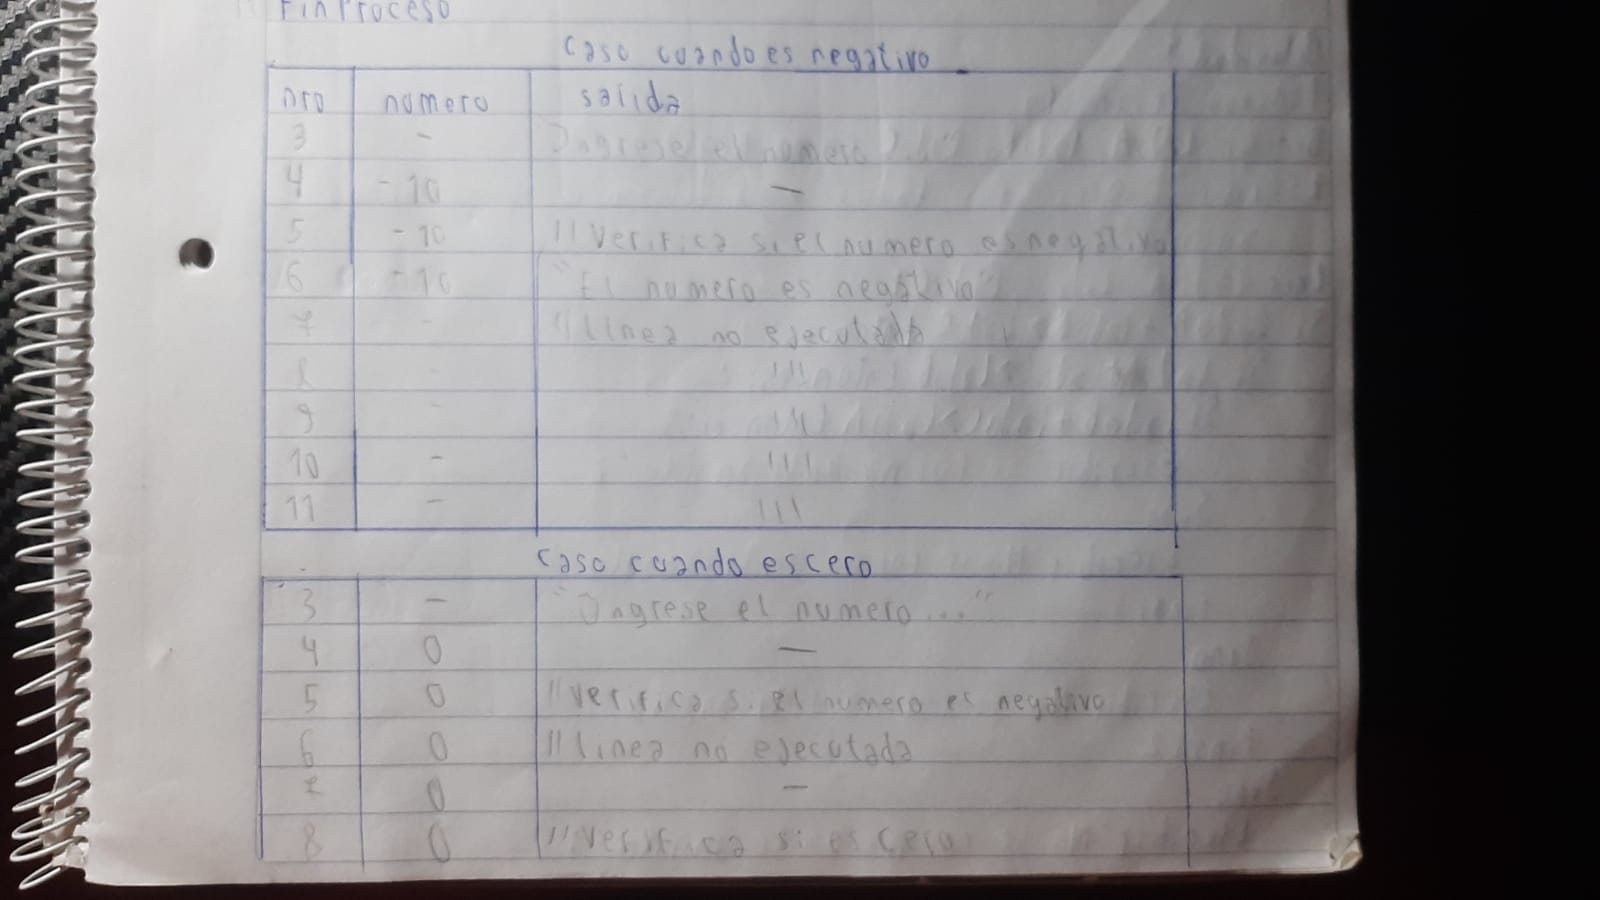 FinProceso
caso cuando es negativo
nro numero salida
3 - Ingrese el numero ..."
4 -10 —
5 -10 // Verifica si el numero es negativo
6 -10 "El numero es negativo"
7 - // linea no ejecutada
8 - ′′′
9 - ′′′
10 - ′′′
11 - ′′′
caso cuando es cero
3 - "Ingrese el numero..."
4 0 —
5 0 // verifica si el numero es negativo
6 0 // linea no ejecutada
7 0 —
8 0 // verifica si es cero